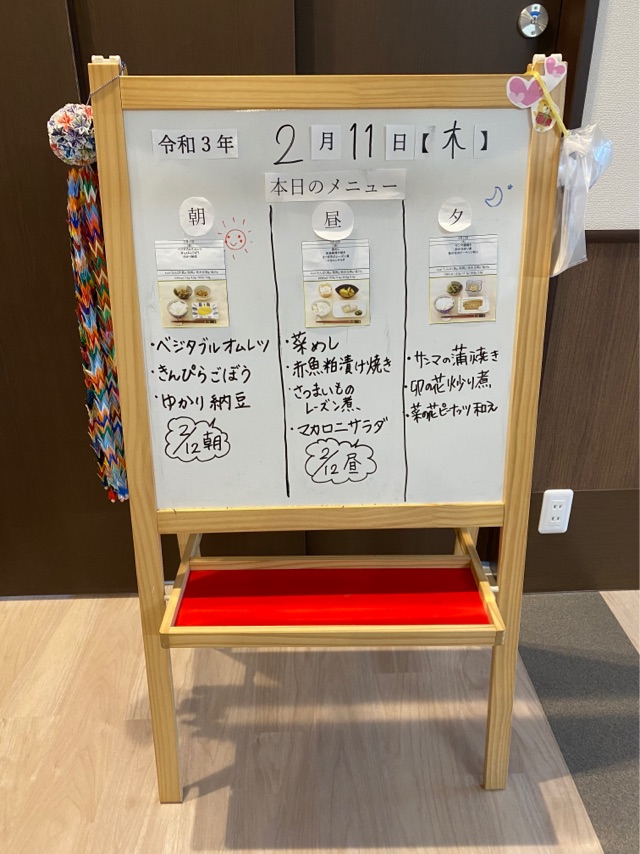 令和3年 2月11日【木】
本日のメニュー
朝
・ベジタブルオムレツ
・きんぴらごぼう
・ゆかり納豆
2/12朝
昼
・菜めし
・赤魚粕漬け焼き
・さつまいもの
レーズン煮
・マカロニサラダ
2/12昼
夕
・サンマの蒲焼き
・卯の花炒り煮
・菜の花ピーナッツ和え